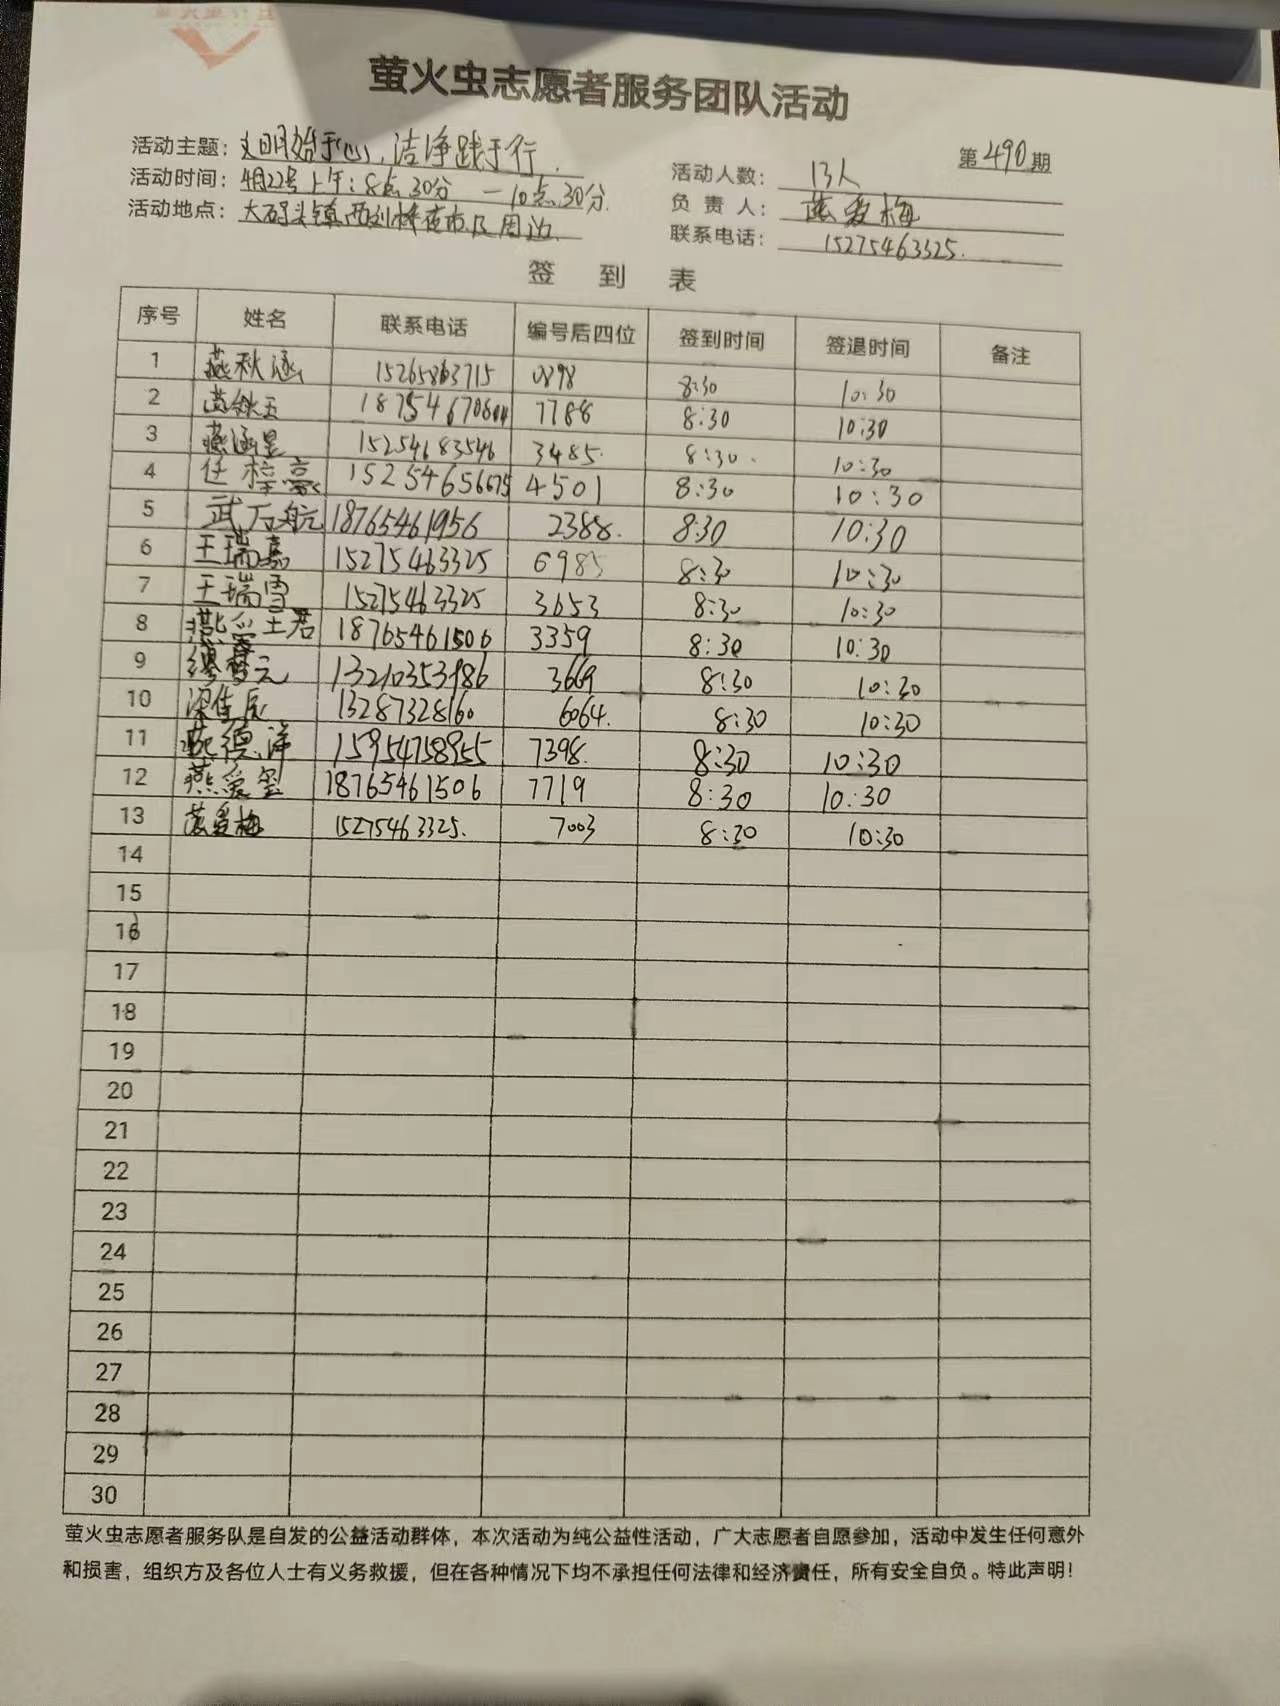 萤火虫志愿者服务团队活动
第490期
活动主题：文明始于心，洁净践于行.
活动人数：13人
活动时间：4月22号上午：8点30分—10点30分.
负责人：燕爱梅
活动地点：大码头镇西刘桥夜市及周边
联系电话：15275463325.
签到表
序号 姓名 联系电话 编号后四位 签到时间 签退时间 备注
1 燕秋涵 15265863715 0898 8:30 10:30
2 18754670604 7788 8:30 10:30
3 燕涵昱 15254683546 3485. 8:30. 10:30
4 任梓豪 15254656675 4501 8:30 10:30
5 武石航 18765461956 2388. 8:30 10:30
6 王瑞嘉 15275463325 6985 8:30 10:30
7 王瑞雪 15275463325 3653 8:30 10:30
8 18765461506 3359 8:30 10:30
9 13210353986 3669 8:30 10:30
10 梁佳辰 13287328160 6064. 8:30 10:30
11 燕德洋 15954758955 7398. 8:30 10:30
12 燕爱玺 18765461506 7719 8:30 10:30
13 燕爱梅 15275463325. 7003 8:30 10:30
14
15
16
17
18
19
20
21
22
23
24
25
26
27
28
29
30
萤火虫志愿者服务队是自发的公益活动群体，本次活动为纯公益性活动，广大志愿者自愿参加，活动中发生任何意外
和损害，组织方及各位人士有义务救援，但在各种情况下均不承担任何法律和经济责任，所有安全自负。特此声明！